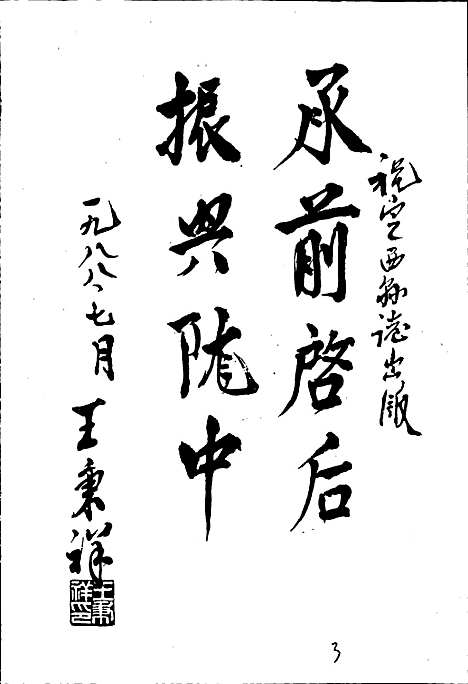 祝定西县志出版
承前启后
振兴陇中
一九八八、七月
王秉祥
王秉祥印
3